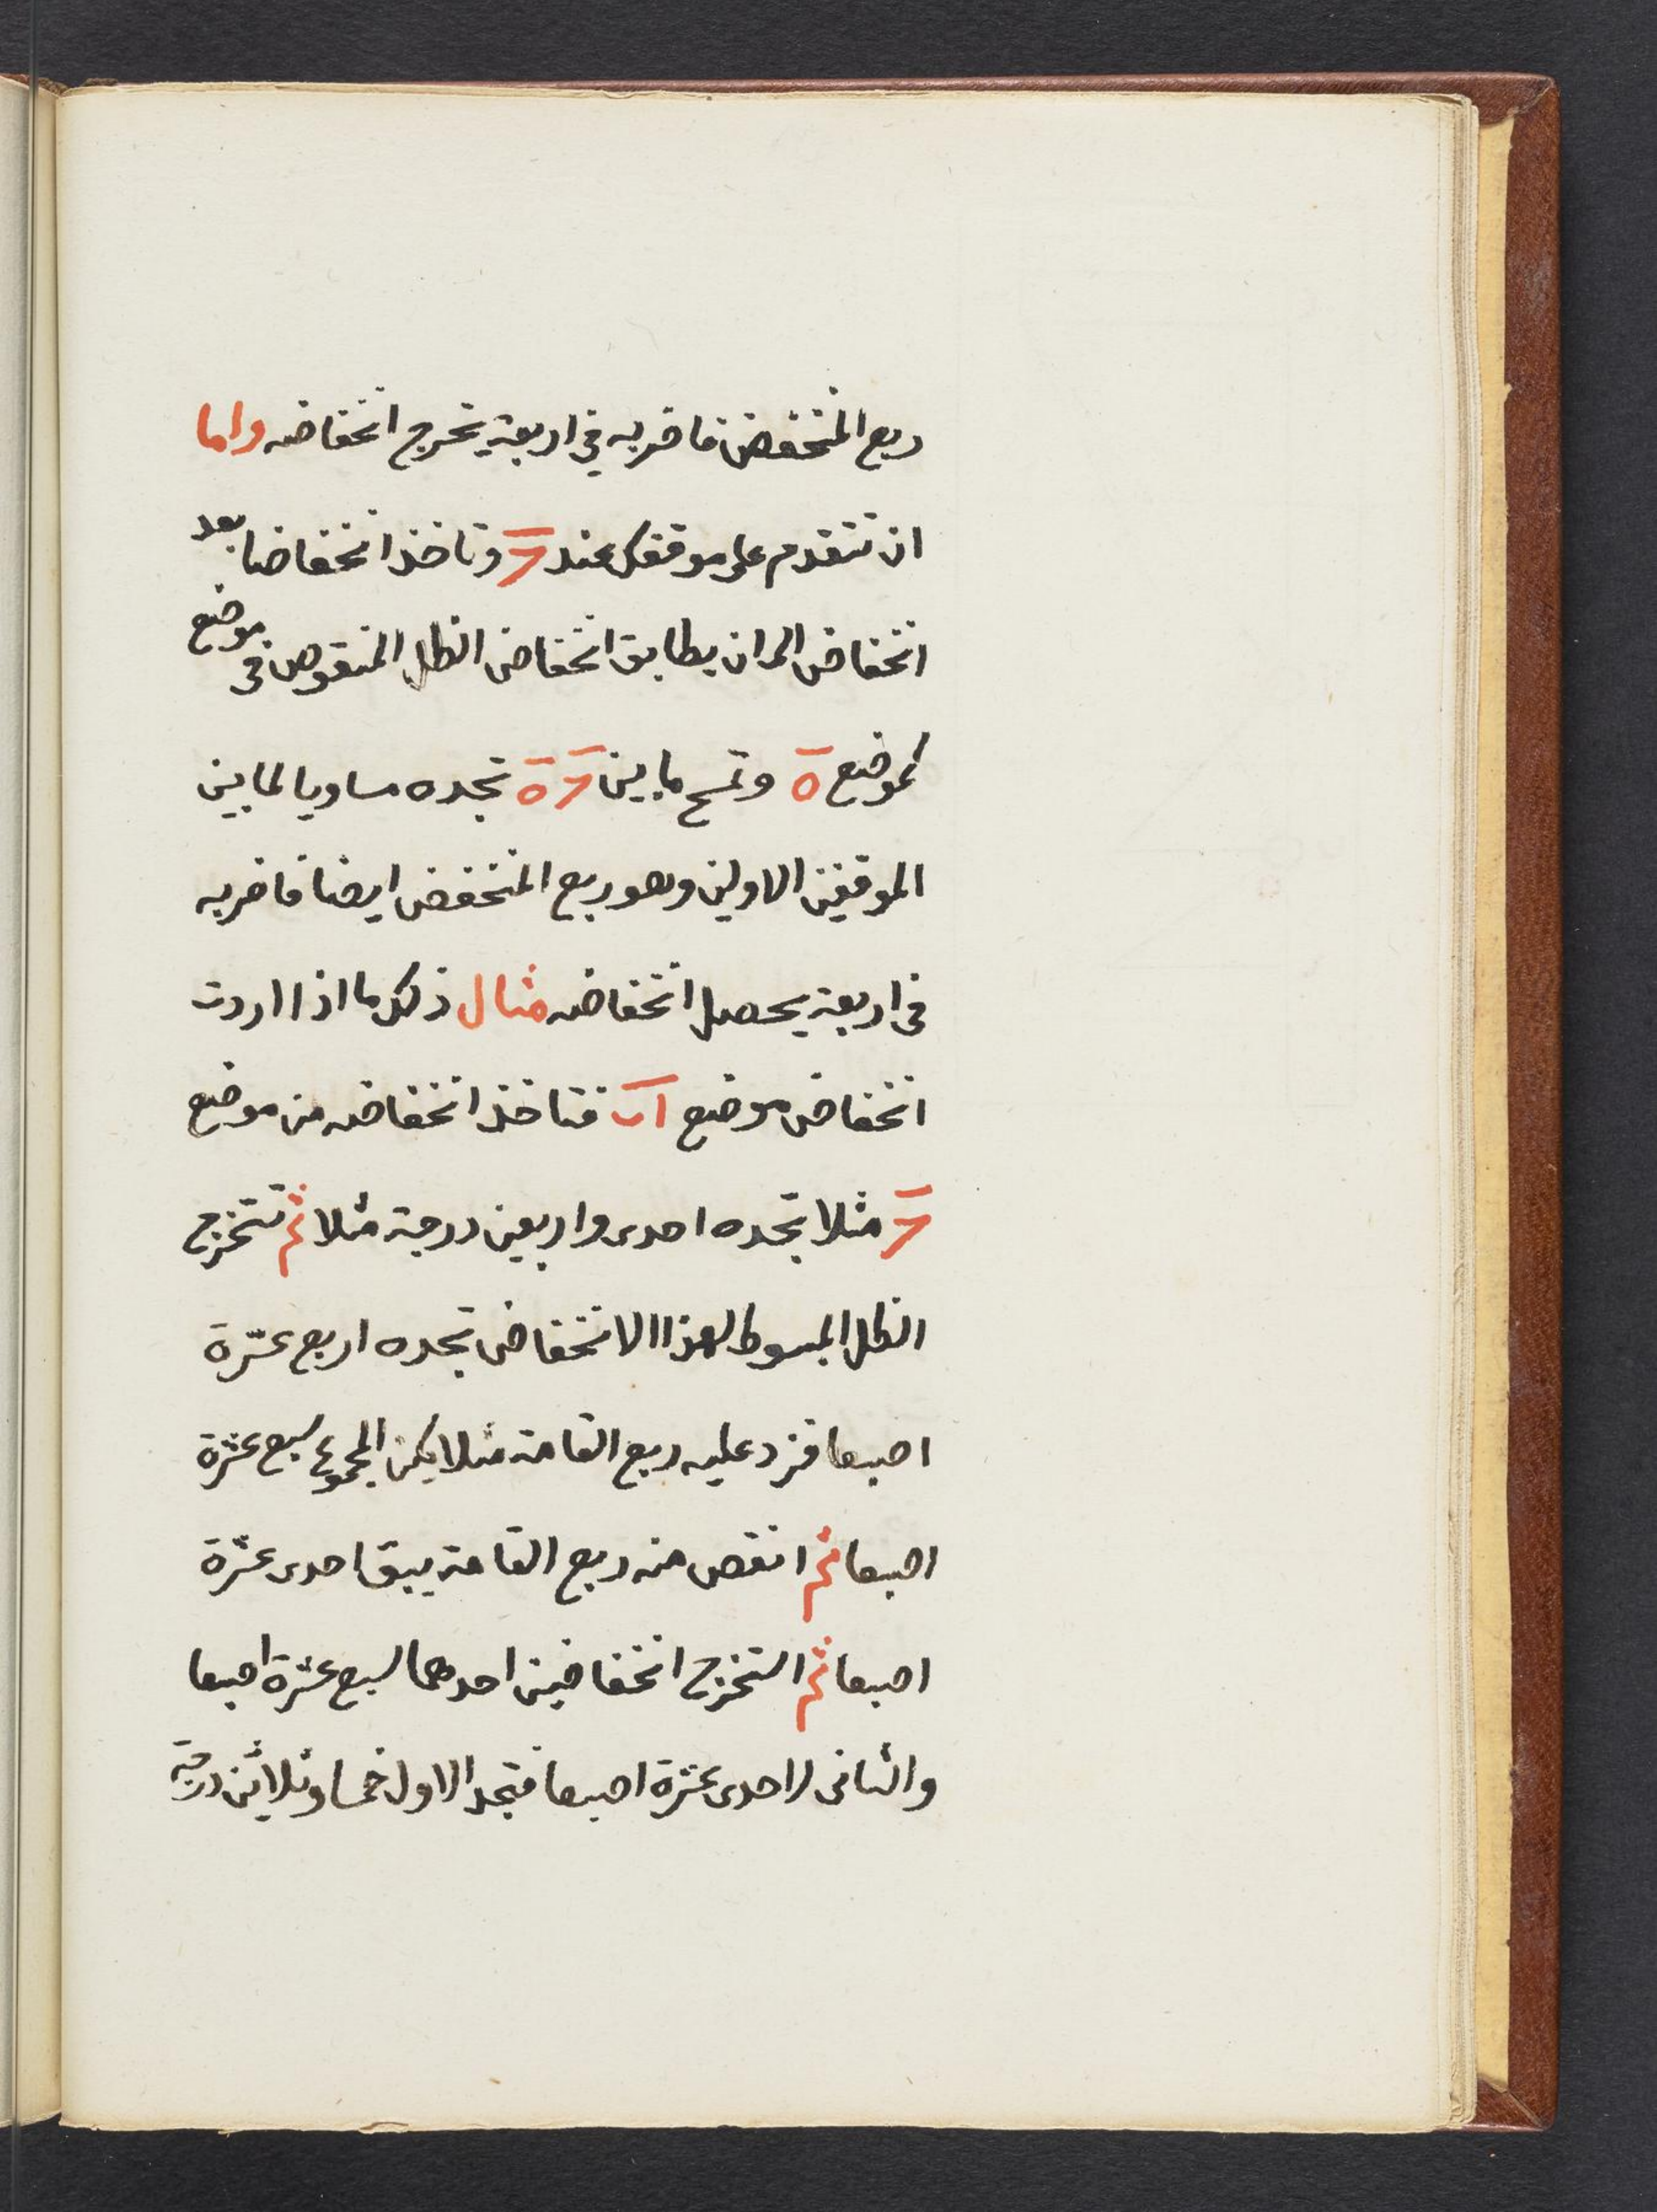 ربع المنخفض فاضربه في اربعة يخرج انخفاضه واما
ان تتقدم على موقفك عند وتاخذ انخفاضا بعد
انخفاض الى ان يطابق انخفاض الظل المنقوص في موضع
كموضع ة وتمسح ما بين ة تجده مساويا لما بين
الموقفين الاولين وهو ربع المنخفض ايضا فاضربه
في اربعة يحصل انخفاضه مثال ذلك ما اذا اردت
انخفاض موضع اب فتاخذ انخفاضه من موضع
مثلا تجده احدى واربعين درجة مثلا ثم تستخرج
الظل المبسوط لهذا الانخفاض تجده اربع عشرة
اصبعا فزد عليه ربع القامة مثلا يكن المجموع سبع عشرة
اصبعا ثم انقص منه ربع القامة يبق احدى عشرة
اصبعا ثم استخرج انخفاضين احدهما لسبع عشرة اصبعا
والثاني لاحدى عشرة اصبعا فتجد الاول خمسا وثلاثين درجة